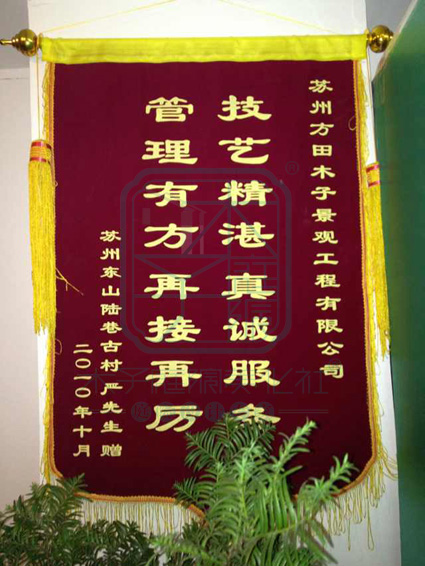 苏州方田木子景观工程有限公司
技艺精湛真诚服务
管理有方再接再历
苏州东山陆巷古村严先生赠
二〇一〇年十月